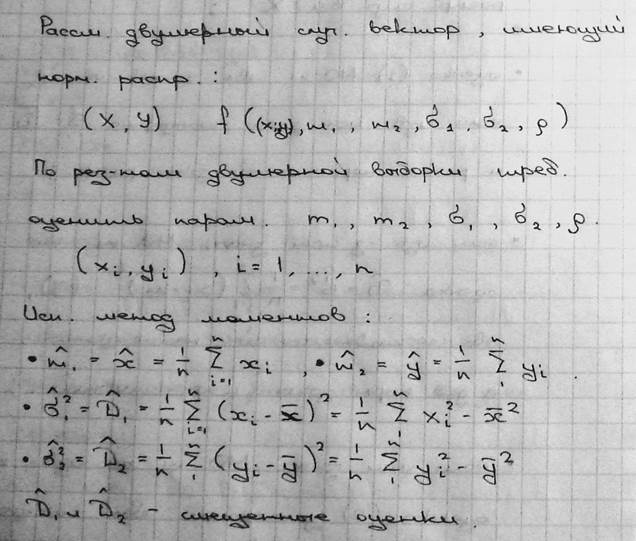 Рассм. двумерный случ. вектор, имеющий
норм. распр.:
(X, Y) f((x,y), m₁, m₂, σ₁, σ₂, ρ)
По рез-там двумерной выборки треб.
оценить парам. m₁, m₂, σ₁, σ₂, ρ.
(xᵢ, yᵢ), i = 1, ..., n
Исп. метод моментов:
• m̂₁ = x̂ = 1/n ∑ᵢ₌₁ⁿ xᵢ, • m̂₂ = ŷ = 1/n ∑₁ⁿ yᵢ.
• σ̂₁² = D̂₁ = 1/n ∑ᵢ₌₁ⁿ (xᵢ - x̄)² = 1/n ∑₁ⁿ xᵢ² - x̄²
• σ̂₂² = D̂₂ = 1/n ∑₁ⁿ (yᵢ - ȳ)² = 1/n ∑₁ⁿ yᵢ² - ȳ²
D̂₁ и D̂₂ - смещенные оценки.